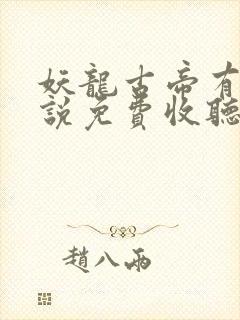 妖龍古帝有
說免費收聽
趙八兩